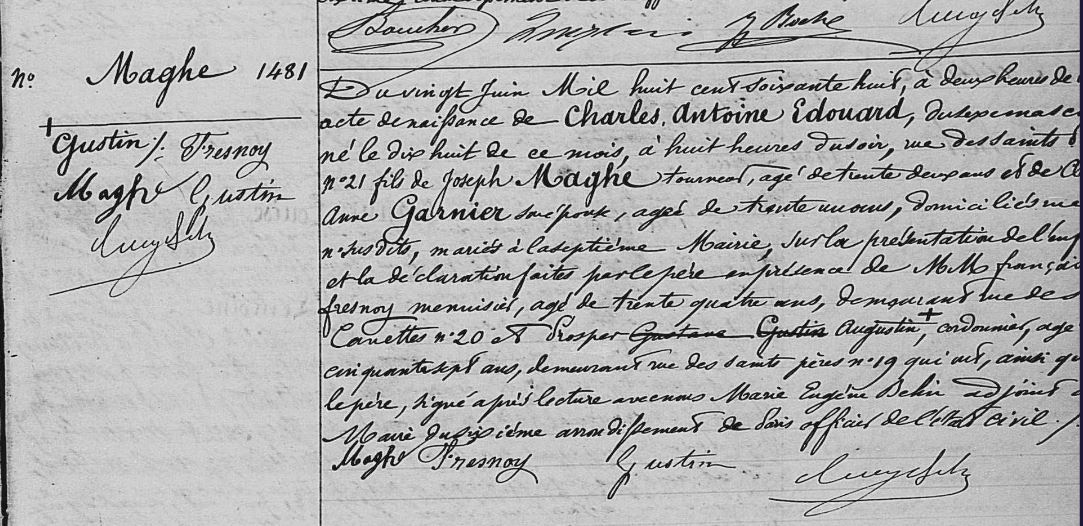 Boucher
J Roche
nº Maghe 1481
+
Gustin /: Fresnoy
Maghe Gustin
Du vingt Juin Mil huit cent soixante huit, à deux heures de
acte de naissance de Charles, Antoine Edouard, du sexe masc
né le dix huit de ce mois, à huit heures du soir, rue des Saints
nº 21 fils de Joseph Maghe tourneur, agé de trente deux ans et de
Anne Garnier son épouse, agée de trente un ans, domiciliés
nº susdits, mariés à la septième Mairie, sur la présentation de l'
et la déclaration faites par le père en présence de MM françois
fresnoy menuisier, agé de trente quatre ans, demeurant rue des
Canettes nº 20 et Prosper Gustave Gustin Augustin +, cordonnier, agé
cinquante sept ans, demeurant rue des saints pères nº 19 qui ont, ainsi
le père, signé après lecture avec nous Marie Eugène adjoint
Maire du sixième arrondissement de Paris officier de l'état civil /.
Maghe Fresnoy Gustin